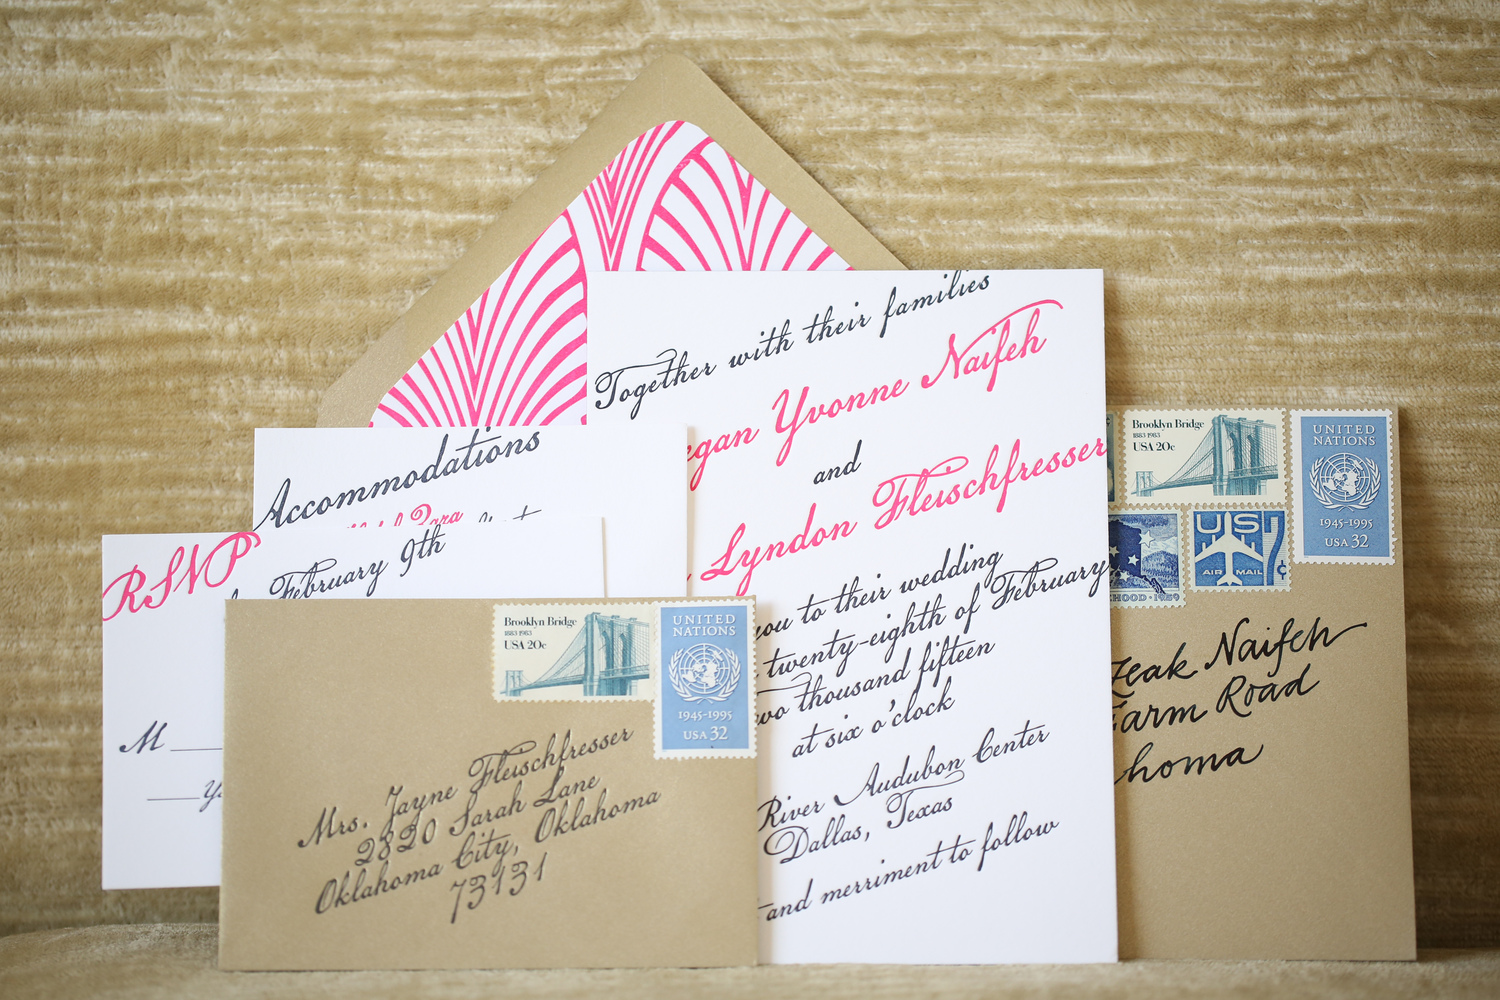 Together with their families
egan Yvonne Naifeh
and
Lyndon Fleischfresser
you to their wedding
twenty-eighth of February
two thousand fifteen
at six o'clock
River Audubon Center
Dallas, Texas
and merriment to follow
Accommodations
RSVP
February 9th
M
Brooklyn Bridge
1883-1983
USA 20c
UNITED
NATIONS
1945-1995
USA 32
Mrs. Jayne Fleischfresser
2820 Sarah Lane
Oklahoma City, Oklahoma
73131
Brooklyn Bridge
1883-1983
USA 20c
UNITED
NATIONS
1945-1995
USA 32
HOOD·1959
US 7¢
AIR MAIL
Zeak Naifeh
Farm Road
homa